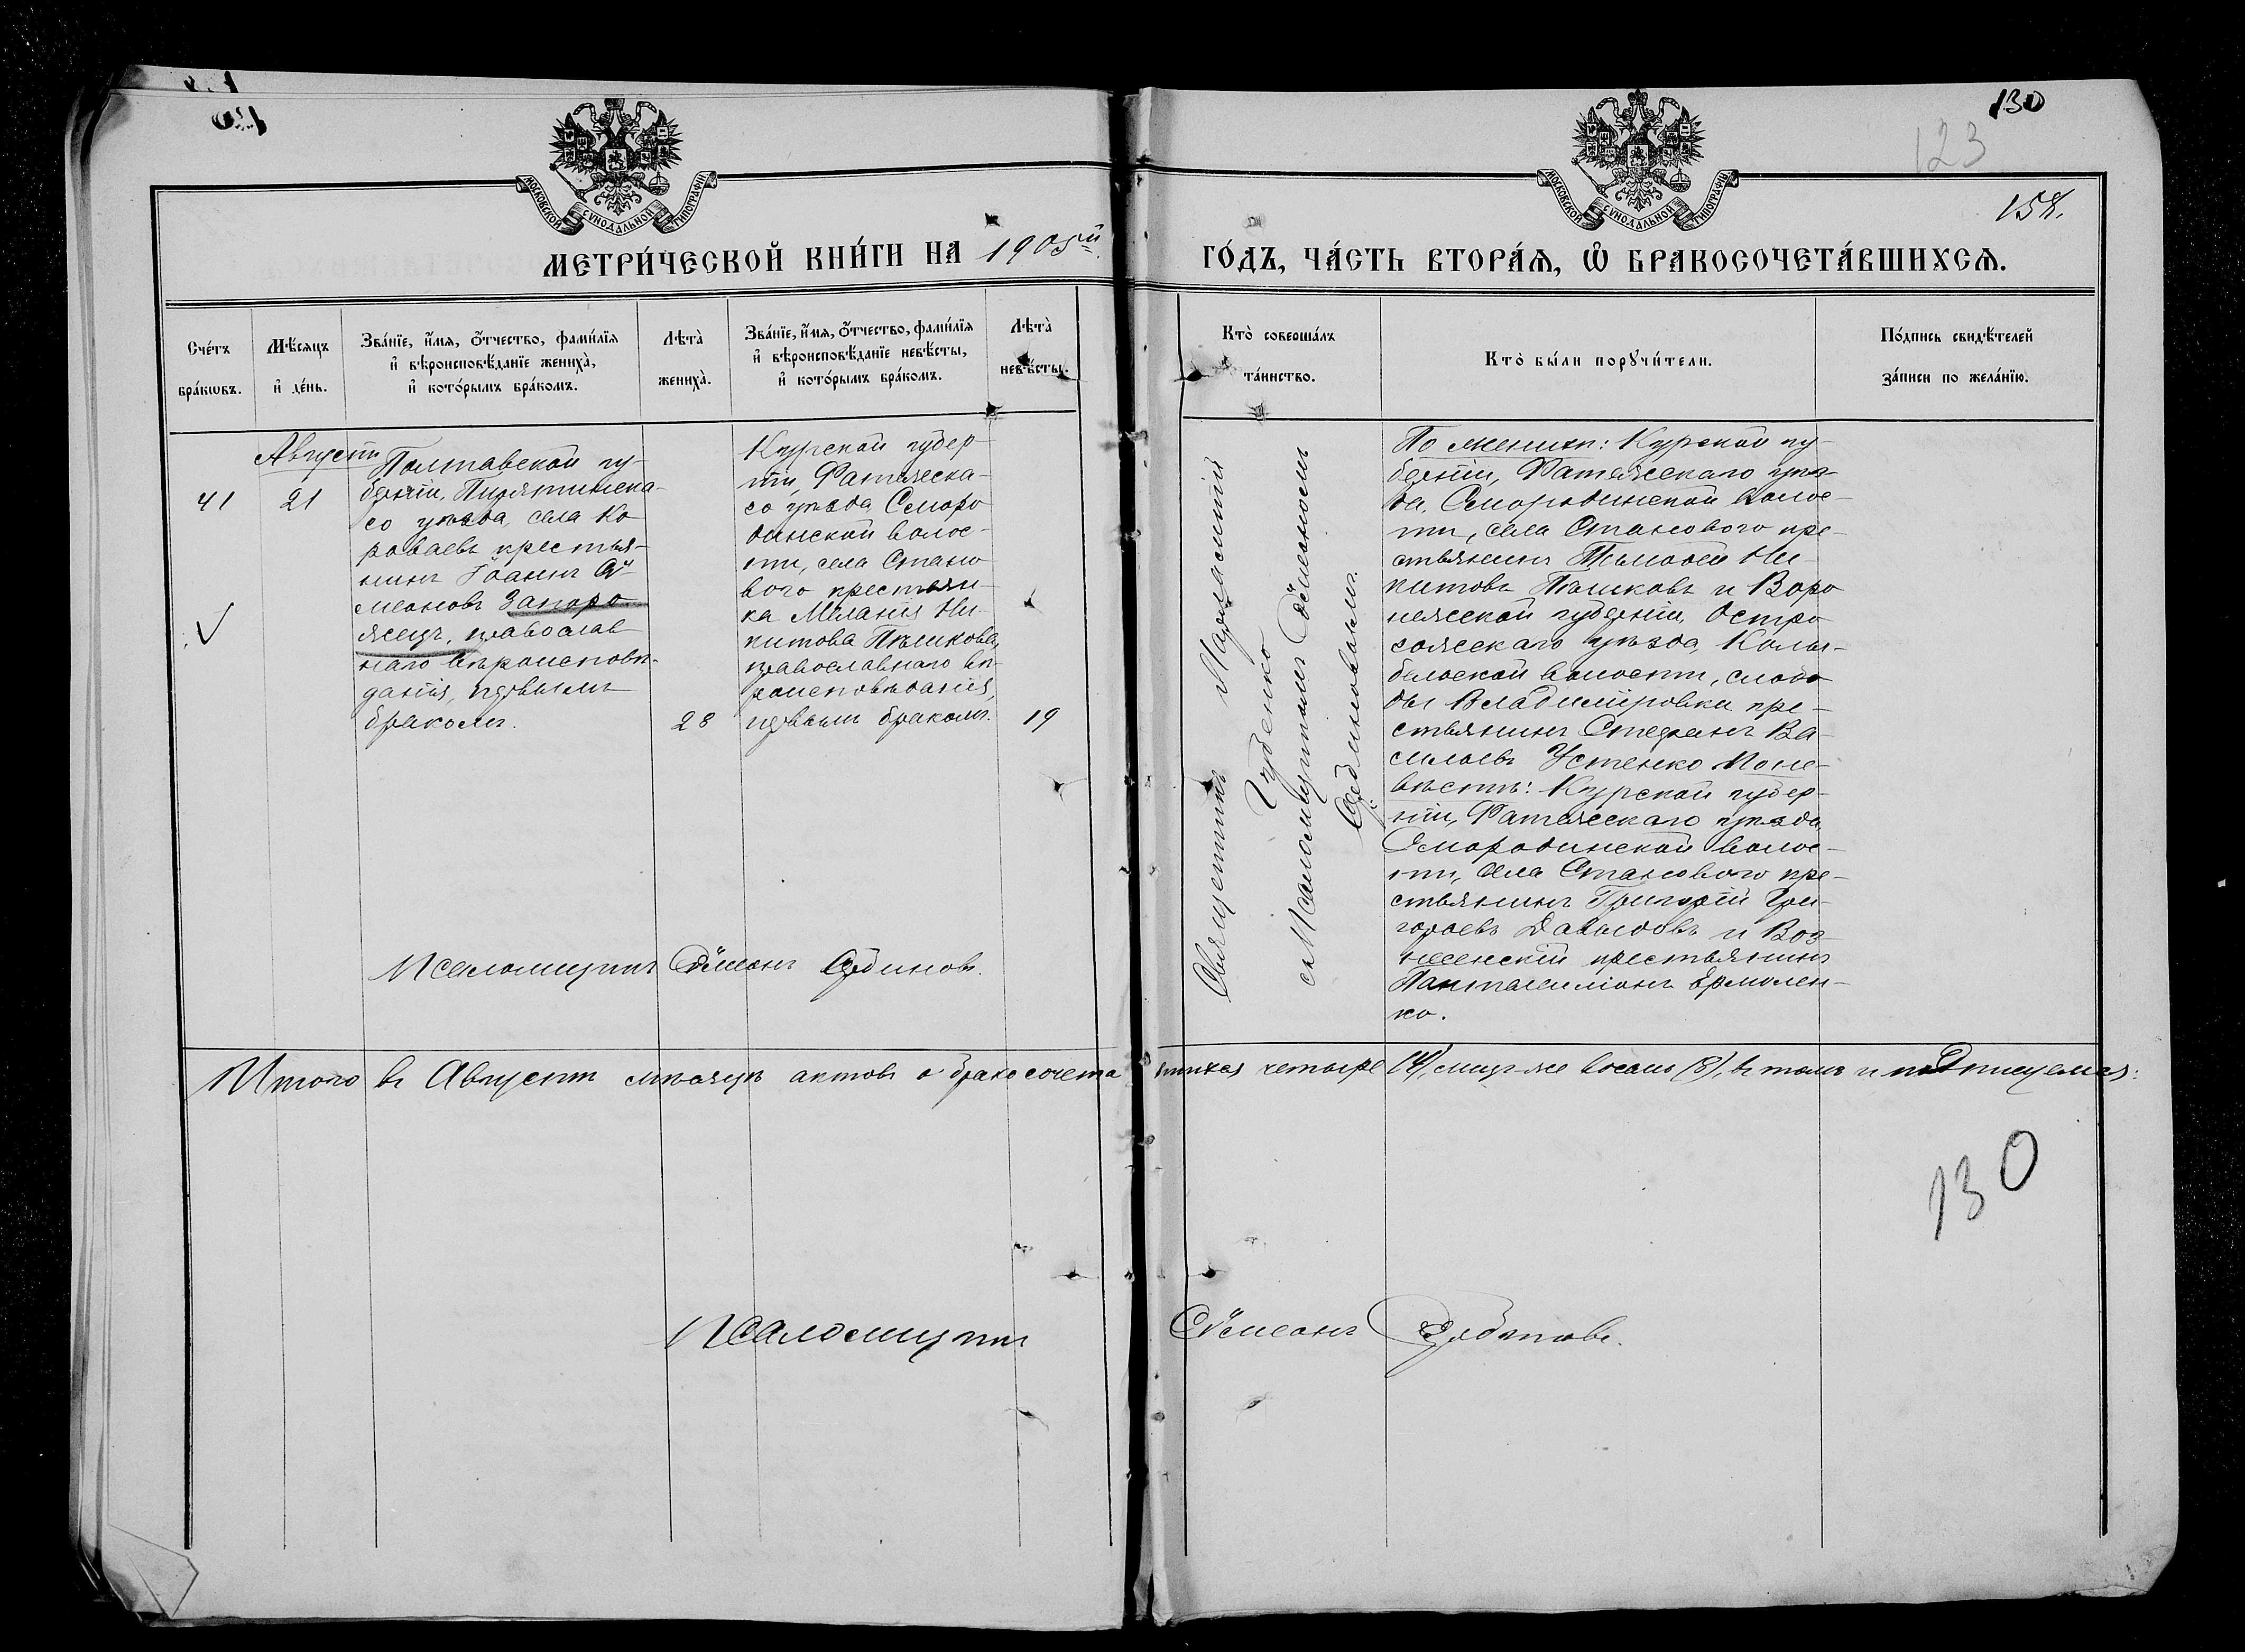 130
123
158.
МОСКОВСКОЙ СУНОДАЛЬНОЙ ТИПОГРАФІИ
МОСКОВСКОЙ СУНОДАЛЬНОЙ ТИПОГРАФІИ
МЕТРИ́ЧЕСКОЙ КНИ́ГИ НА 1905й
ГО́ДЪ, ЧА́СТЬ ВТОРА́Я, Ѽ БРАКОСОЧЕТА́ВШИХСЯ.
Сче́тъ
бра́кωвъ.
Мѣ́сяцъ
и҆ де́нь.
Зва́нїе, и҆́мя, ѻ҆́тчество, фами́лїя
и҆ вѣроисповѣ́данїе жениха̀,
и҆ кото́рымъ бра́комъ.
Лѣ́та̀
жениха̀.
Зва́нїе, и҆́мя, ѻ҆́тчество, фами́лїя
и҆ вѣроисповѣ́данїе невѣ́сты,
и҆ кото́рымъ бра́комъ.
Лѣ́та̀
невѣ́сты.
Кто̀ соверша́лъ
та́инство.
Кто̀ бы́ли порꙋчи́тели.
По́дпись свидѣ́телей
за́писи по жела́нїю.
Августъ
41
21
Полтавской гу-
берніи, Пирятинска-
го уѣзда, села Ко
роваевъ крестья-
нинъ Іоаннъ Сѵ
меоновъ Запоро
жецъ, православ
наго вѣроисповѣ-
данія, первымъ
бракомъ.
28
Курской губер-
ніи, Фатежска-
го уѣзда Сморо
динской волос-
ти, села Стано
вого крестьян-
ка Меланія Ни-
китова Пѣшкова,
православнаго вѣ-
роисповѣданія,
первымъ бракомъ.
19
Псаломщикъ Сѵмеонъ
Священникъ
Губенко
съ Псаломщикомъ Сѵмеономъ
По женихѣ: Курской гу-
берніи, Фатежскаго уѣз-
да, Смородинской волос-
ти, села Станового кре-
стьянинъ Тимофей Ни-
китовъ Пѣшковъ и Воро
нежской губерніи, Остро
гожскаго уѣзда, Колы-
бельской волости, слобо
ды Владиміровки кре-
стьянинъ Стефанъ Ва-
сильевъ Устенко По не-
вѣстѣ: Курской губер-
ніи, Фатежскаго уѣзда,
Смородинской волос-
ти, села Станового кре-
стьянинъ Григорій Гри-
горьевъ Давыдовъ и Воз-
несенскій крестьянинъ
Пантелеимонъ Ермолен-
ко.
Итого въ Августѣ мѣсяцѣ актовъ о бракосочета вшихся четыре (4), лицъ-же восемь (8), въ томъ и подписуемся:
130
Псаломщикъ Сѵмеонъ